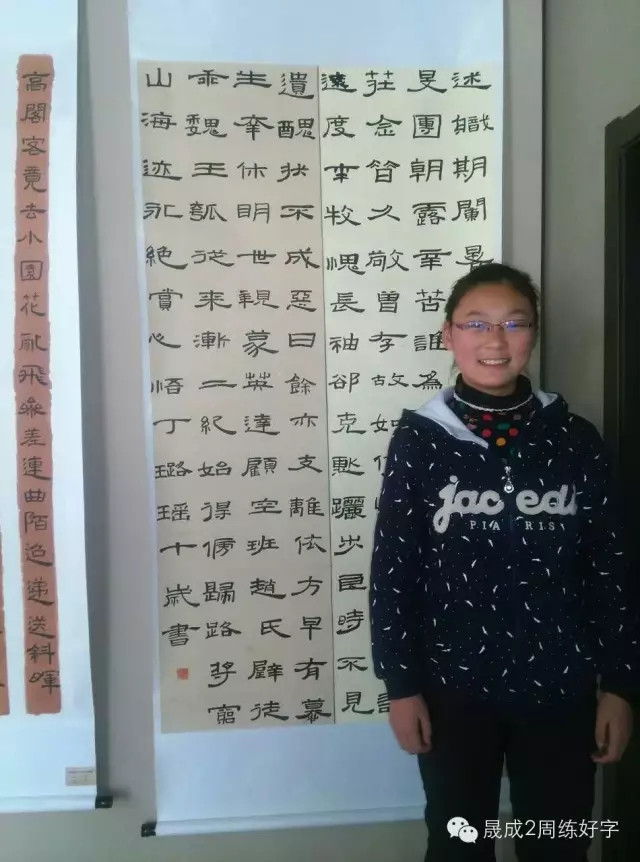 述職期闌
旻團朝露辛苦誰為
莊念昔久敬曾存故如
遠度李牧愧長袖郤克慚躧步良時不見
遺醜狀不成惡曰餘亦支離依方早有慕
生幸休明世親蒙英達顧空班趙氏璧徒
乖魏王瓠從來漸二紀始得傍歸路將窮
山海迹永絕賞心悟丁璐瑶十歲書
高閣客竟去小園花亂飛參差連曲陌迢遞送斜暉
jac edi
PIA RIS
晟成2周练好字